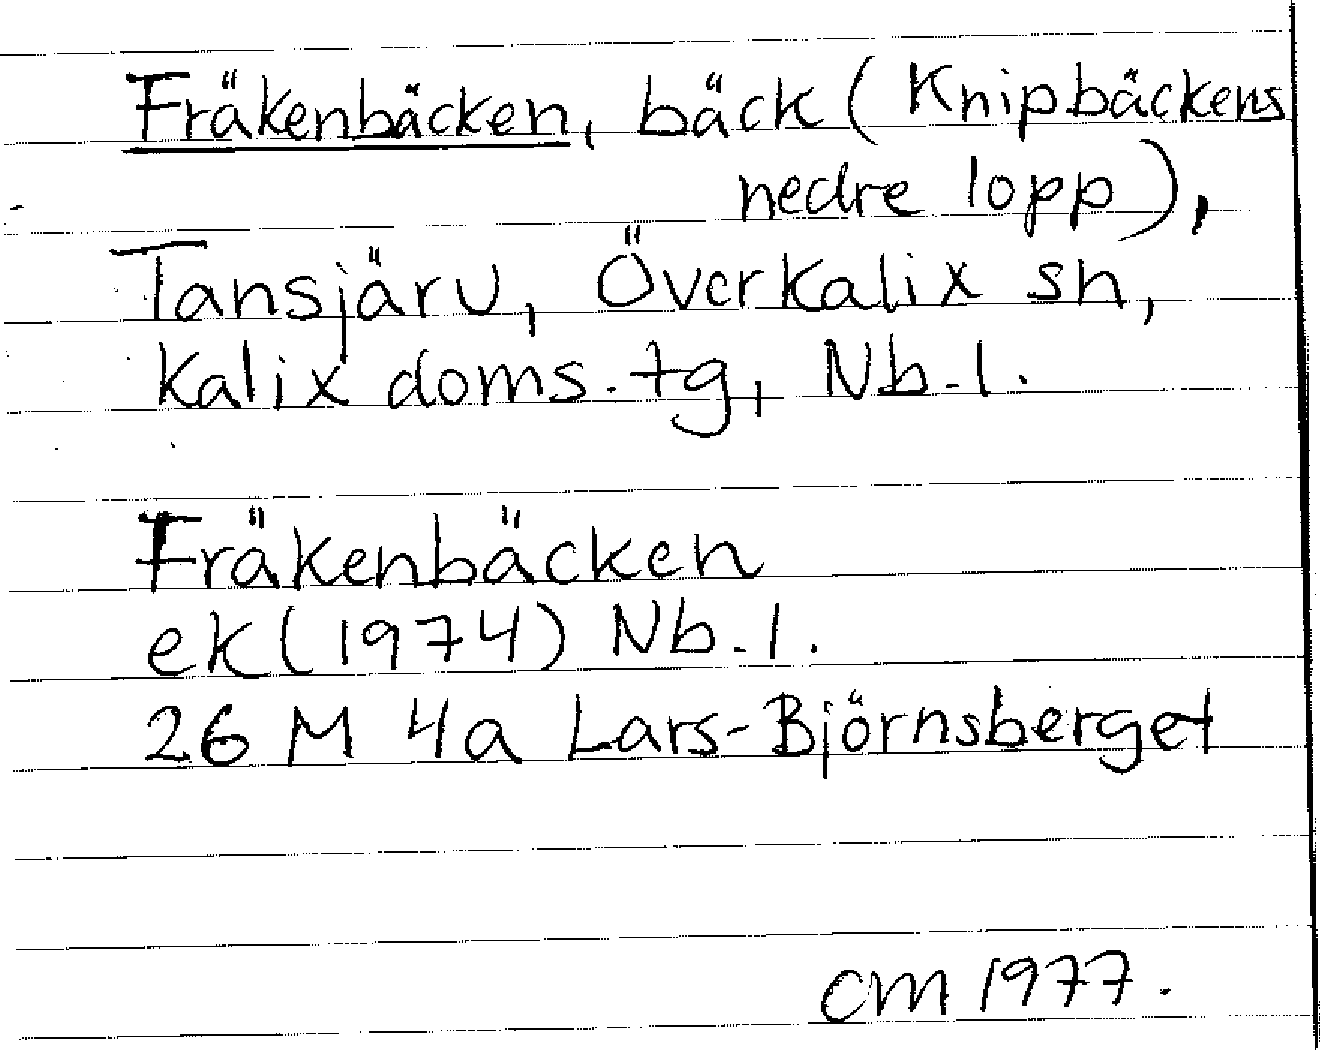 Fräkenbäcken, bäck (Knipbäckens
nedre lopp),
Tansjärv, Överkalix sn,
Kalix doms.tg, Nb.l.
Fräkenbäcken
ek (1974) Nb.l.
26 M 4a Lars-Björnsberget
CM 1977.